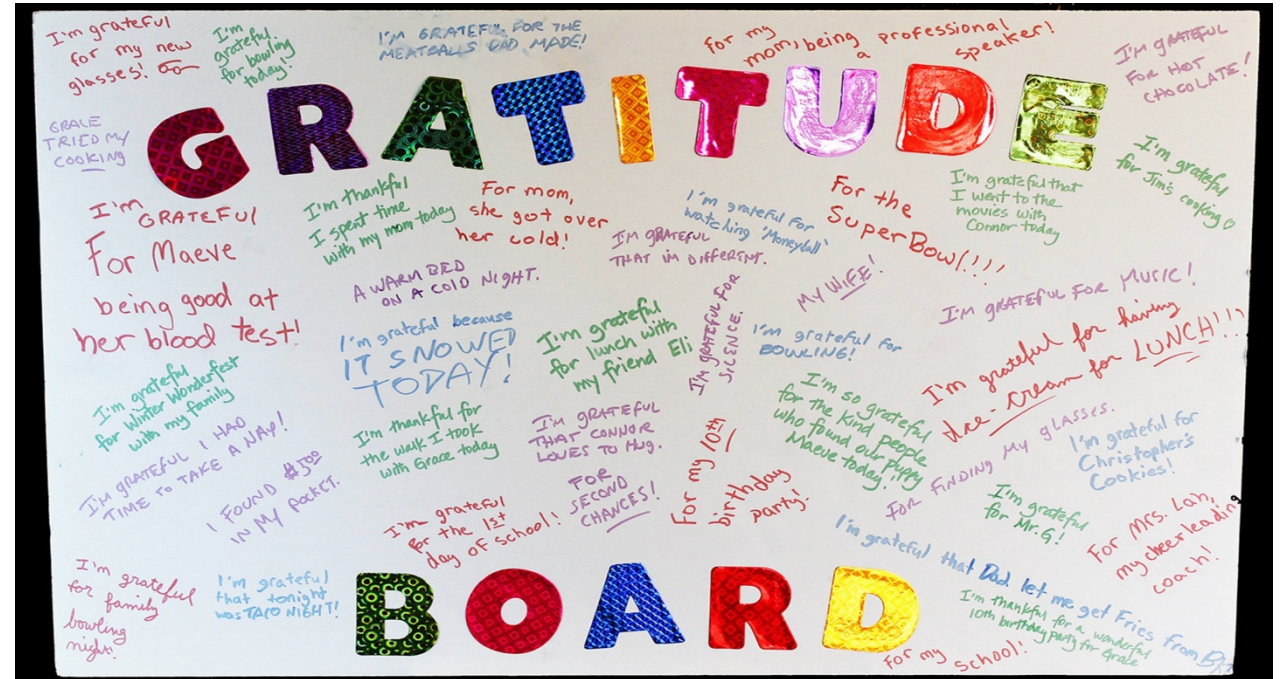 I'm grateful
for my new
glasses!
I'm
grateful
for bowling
today!
I'M GRATEFUL FOR THE
MEATBALLS DAD MADE!
for my
mom, being
a
professional
speaker!
I'M GRATEFUL
FOR HOT
CHOCOLATE!
GRATITUDE
GRACE
TRIED MY
COOKING
I'm grateful
for Jim's cooking
I'm
GRATEFUL
For Maeve
being good at
her blood test!
I'm thankful
I spent time
with my mom today
For mom,
she got over
her cold!
I'm grateful for
watching 'Moneyball'
For the
SuperBowl!!!
I'm grateful that
I went to the
movies with
Connor today
I'M GRATEFUL
THAT IM DIFFERENT.
A WARM BED
ON A COLD NIGHT.
MY WIFE!
I'M GRATEFUL FOR MUSIC!
I'm grateful because
IT SNOWED
TODAY!
I'm grateful
for lunch with
my friend Eli
I'M GRATEFUL FOR
SILENCE.
I'm grateful for
BOWLING!
I'm grateful for having
Ice-cream for LUNCH!!!
I'm grateful
for Winter Wonderfest
with my family
I'm thankful for
the walk I took
with Grace today
I'M GRATEFUL
THAT CONNOR
LOVES TO HUG.
I'm so grateful
for the kind people
who found our puppy
Maeve today!
I'M GRATEFUL I HAD
TIME TO TAKE A NAP!
I FOUND $5.00
IN MY POCKET.
FOR
SECOND
CHANCES!
For my 10th
birthday
party!
FOR FINDING MY GLASSES.
I'm grateful for
Christopher's
Cookies!
I'm grateful
for the 1st
day of school!
I'm grateful
for Mr. G!
For Mrs. Lah,
my cheerleading
coach!
I'm grateful
for family
bowling
night!
I'm grateful
that tonight
was TACO NIGHT!
BOARD
I'm grateful that Dad let me get Fries from
I'm thankful for a wonderful
10th birthday party for Grace
For my school!